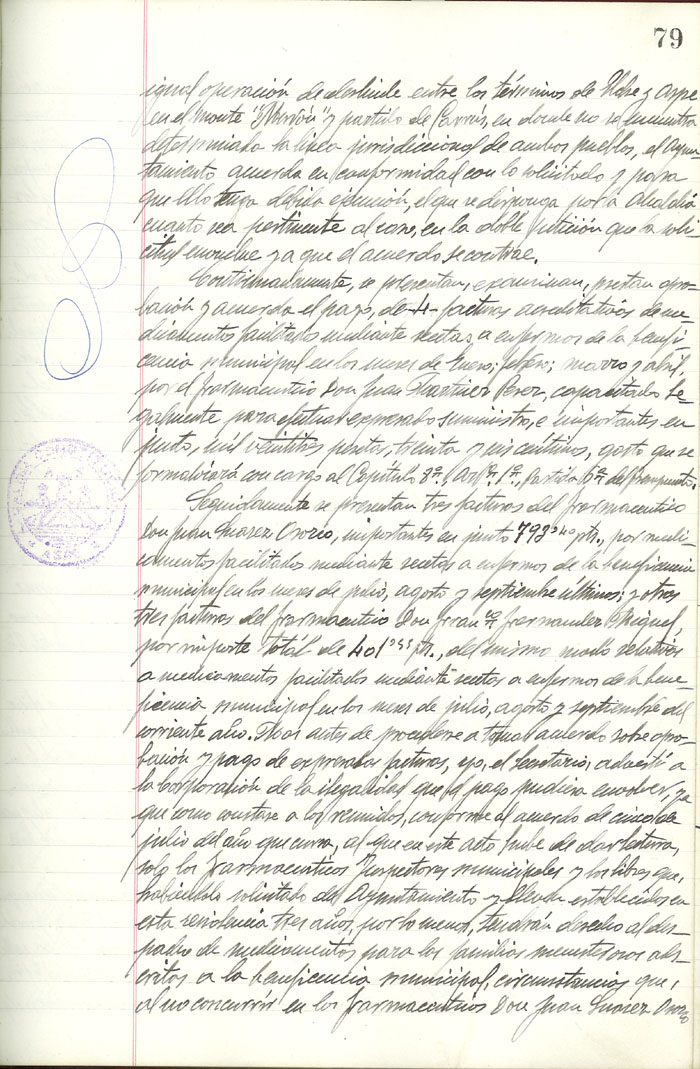 79
igual operación de deslinde entre los términos de Elche y Aspe
en el monte "Morrón" y partido de Carrús, en donde no se encuentra
determinada la línea jurisdiccional de ambos pueblos, el Ayun
tamiento acuerda en conformidad con lo solicitado y para
que ello tenga debida ejecución, el que se disponga por la Alcaldía
cuanto sea pertinente al caso, en la doble petición que la soli
citud envuelve y a que el acuerdo se contrae.
Continuadamente, se presentan, examinan, prestan apro
bación y acuerda el pago, de -4- facturas acreditativas de me
dicamentos facilitados mediante recetas, a enfermos de la benefi
cencia municipal en los meses de Enero; febrero; marzo y abril,
por el farmaceutico Don Juan Martinez Perez, capacitado le
galmente para efectuar expresado suministro, e importantes en
junto, mil veintitres pesetas, treinta y seis centimos, gasto que se
formalizará con cargo al Capítulo 8º, Artº 1º, Partida 6ª del Presupuesto.
Seguidamente se presentan tres facturas del farmaceutico
Don Juan Suarez Orozco, importantes en junto 793'40 pts., por medi
camentos facilitados mediante recetas a enfermos de la beneficencia
municipal en los meses de julio, agosto y septiembre últimos; y otras
tres facturas del farmaceutico Don Franco Fernandez Miguel
por importe total de 401'55 pts., del mismo modo relativas
a medicamentos facilitados mediante recetas a enfermos de la bene
ficencia municipal en los meses de julio, agosto y septiembre del
corriente año. Mas antes de procederse a tomar acuerdo sobre apro
bación y pago de expresadas facturas, yo, el Secretario, advertí a
la Corporación de la ilegalidad que el pago pudiera envolver, ya
que como constase a los reunidos, conforme al acuerdo de cinco de
julio del año que cursa, al que en este acto hube de dar lectura,
solo los farmaceuticos Inspectores municipales y los libres que,
habiéndolo solicitado del Ayuntamiento y lleven establecidos en
esta residencia tres años, por lo menos, tendrán derecho al des
pacho de medicamentos para las familias menesterosas ads
critas a la beneficencia municipal, circunstancias que,
al no concurrir en los farmaceuticos Don Juan Suarez Orozco
ASPE